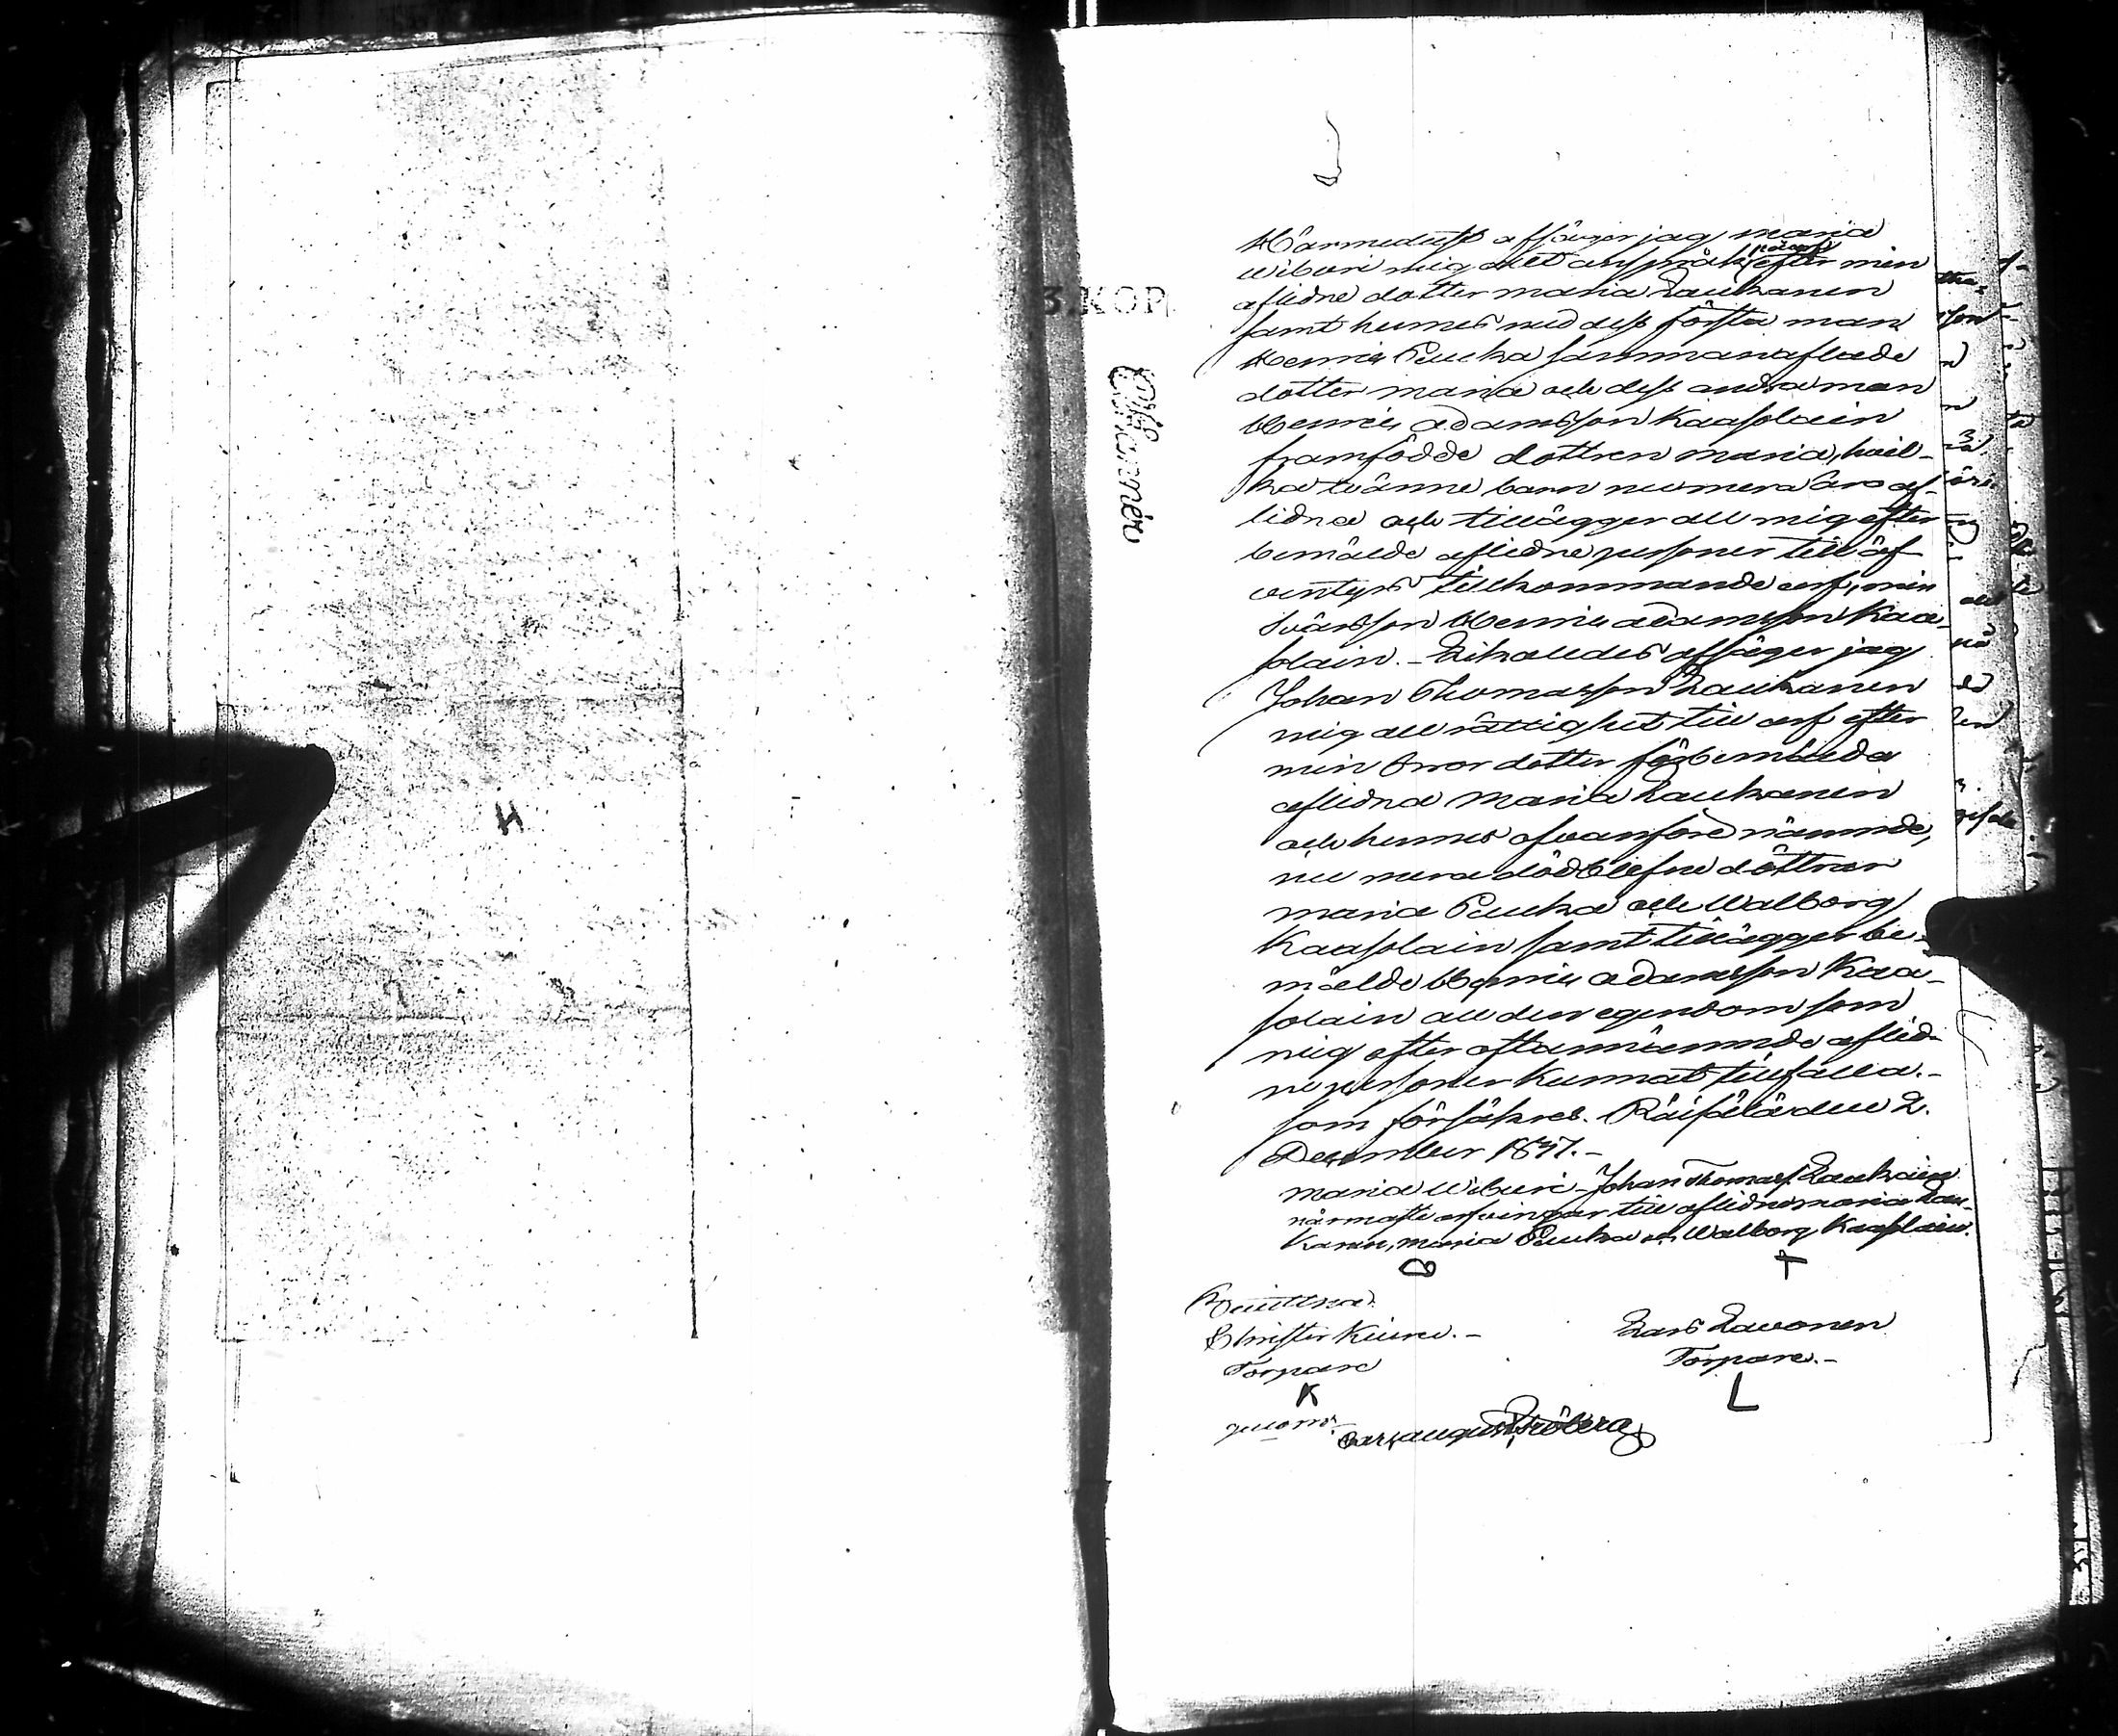 H
3. KOP
Härmedelst afsäger jag Maria
Wiburi mig allt anspråk på arf efter min
aflidne dotter Maria Laukanen
samt hennes med dess första man
Henric Peucka sammanaflade
dotter Maria och dess andra man
Henric Adamsson Kaasolain
framfödde dottren Maria, hvil-
ka tvänne barn numera äro af-
lidna och tillägger all mig efter
bemälde aflidne personer till äf
ventyrs tillkommande arf, min
Svärson Henric Adamsson Kaa-
solain. - Likaledes afsäger jag
Johan Thomasson Laukanen
mig all rättighet till arf efter
min Bror dotter förbemälda
aflidna Maria Laukanen
och hennes ofvanföre nämnde,
nu mera dödblefne döttrar
Maria Peucka och Walborg
Kaasolain samt tillägger be-
mälde Henric Adamsson Kaa-
solain all den egendom som
mig efter oftannämnde aflid-
ne personer kunnat tillfalla. -
som försäkres. Räisälä den 2.
December 1837. -
Maria Wiburi - Johan Thomass. Laukain
närmaste arfvingar till aflidne Maria Lau-
kanen, Maria Peucka och Walborg Kaasolain.
Bevittna
Christer Kiuru. -
Torpare
K
Lars Lavonen
Torpare. -
L
Carl August Fröberg